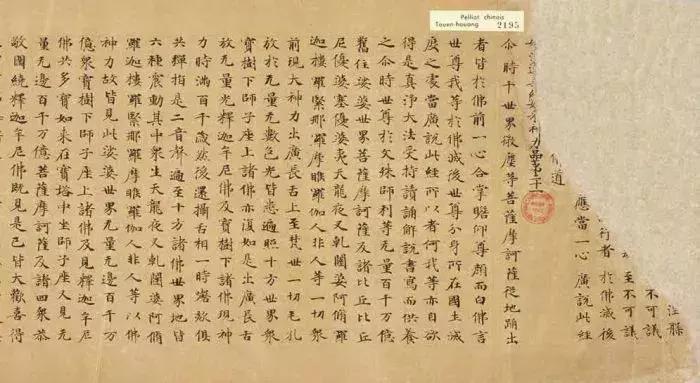 Pelliot chinois
Touen-houang
2195
不可議
至不可議
行者 於佛滅後
應當一心 廣說此經
佛道
力品第廿一
尒時千世界微塵等菩薩摩訶薩從地踊出
者皆於佛前一心合掌瞻仰尊顏而白佛言
世尊我等於佛滅後世尊分身所在國土滅
度之處當廣說此經所以者何我等亦自欲
得是真淨大法受持讀誦解說書寫而供養
之尒時世尊於文殊師利等无量百千万億
舊住娑婆世界菩薩摩訶薩及諸比丘比丘
尼優婆塞優婆夷天龍夜叉乹闥婆阿脩羅
迦樓羅緊那羅摩睺羅伽人非人等一切衆
前現大神力出廣長舌上至梵世一切毛孔
放於无量无數色光皆悉遍照十方世界衆
寶樹下師子座上諸佛亦復如是出廣長舌
放无量光釋迦牟尼佛及寶樹下諸佛現神
力時滿百千歲然後還攝舌相一時謦欬俱
共彈指是二音聲遍至十方諸佛世界地皆
六種震動其中衆生天龍夜叉乹闥婆阿脩
羅迦樓羅緊那羅摩睺羅伽人非人等以佛
神力故皆見此娑婆世界无量无邊百千万
億衆寶樹下師子座上諸佛及見釋迦牟尼
佛共多寶如來在寶塔中坐師子座又見无
量无邊百千万億菩薩摩訶薩及諸四衆恭
敬圍繞釋迦牟尼佛既見是已皆大歡喜得